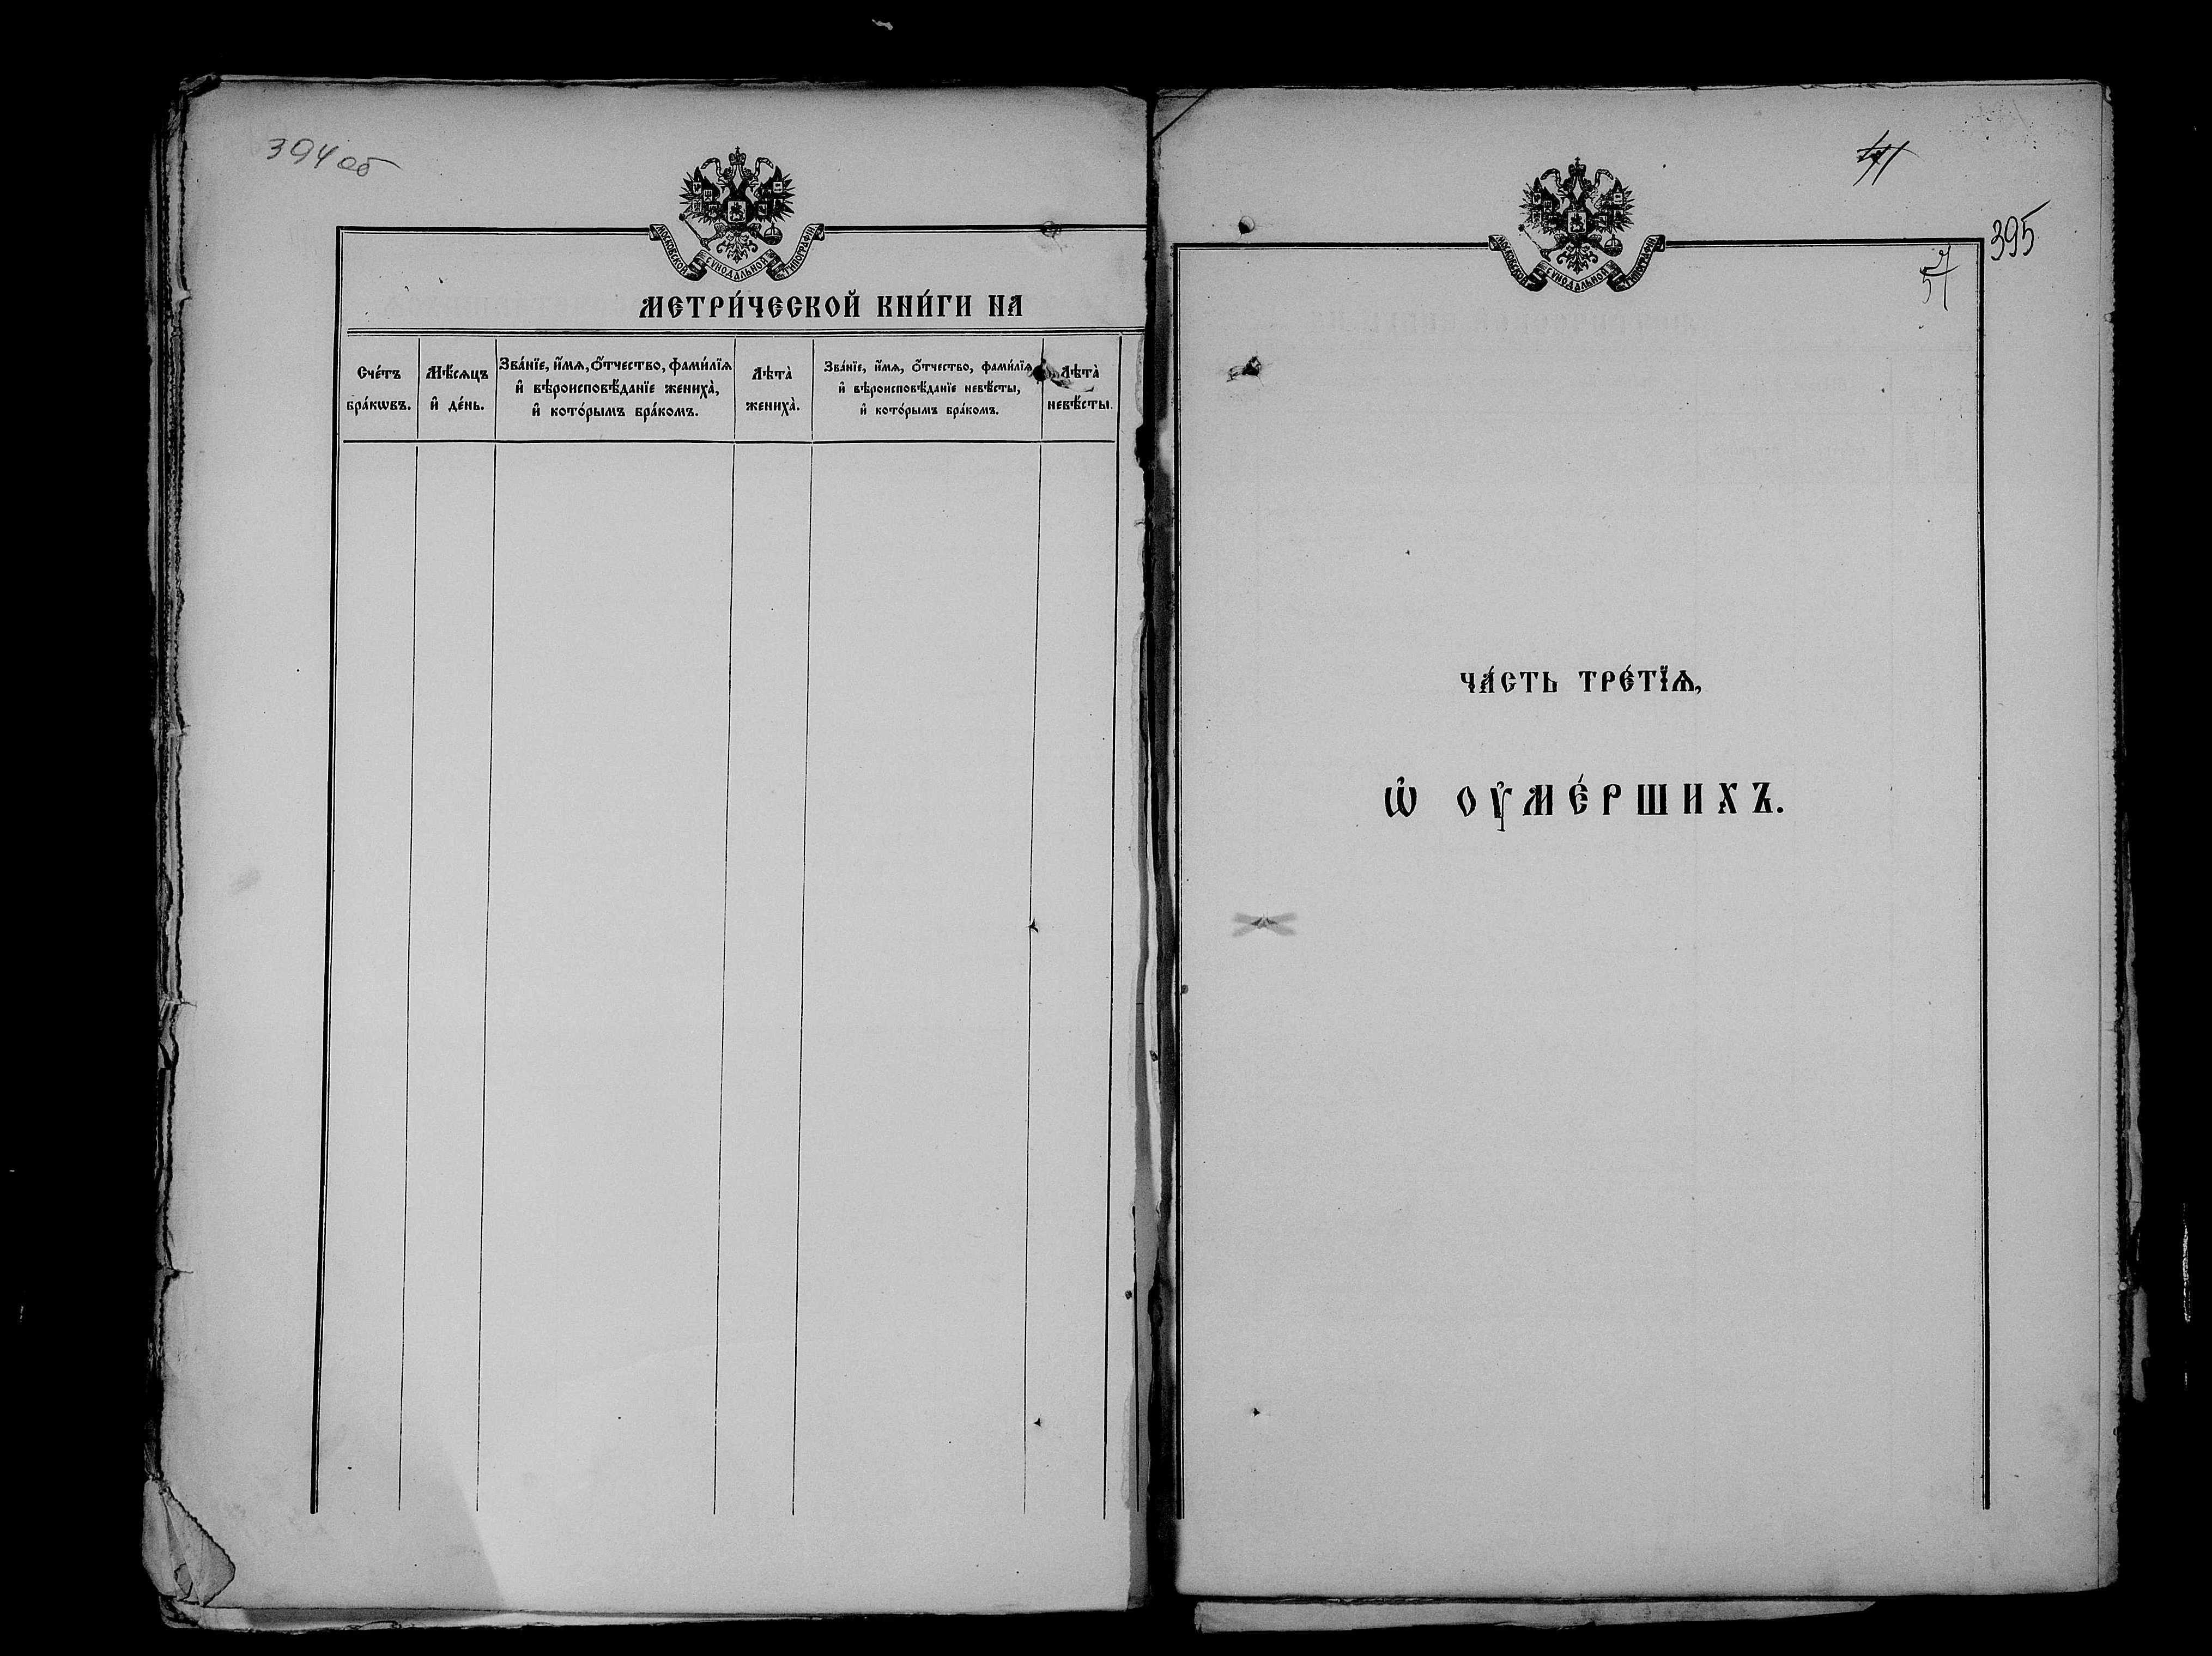 394 об
МОСКОВСКОЙ СѴНОДАЛЬНОЙ ТИПОГРАФІИ
МЕТРИ́ЧЕСКОЙ КНИ́ГИ НА
Сче́тъ
бра́кѡвъ.
Мѣ́сѧцъ
и҆ де́нь.
Зва́нїе, и҆́мѧ, ѻ҆́тчество, фами́лїѧ
и҆ вѣроисповѣ́данїе жениха̀,
и҆ кото́рымъ бра́комъ.
Лѣта̀
жениха̀.
Зва́нїе, и҆́мѧ, ѻ҆́тчество, фами́лїѧ
и҆ вѣроисповѣ́данїе невѣ́сты,
и҆ кото́рымъ бра́комъ.
Лѣта̀
невѣ́сты.
395
МОСКОВСКОЙ СѴНОДАЛЬНОЙ ТИПОГРАФІИ
ЧА́СТЬ ТРЕ́ТЇѦ,
Ѡ҆ ОУ҆МЕ́РШИХЪ.